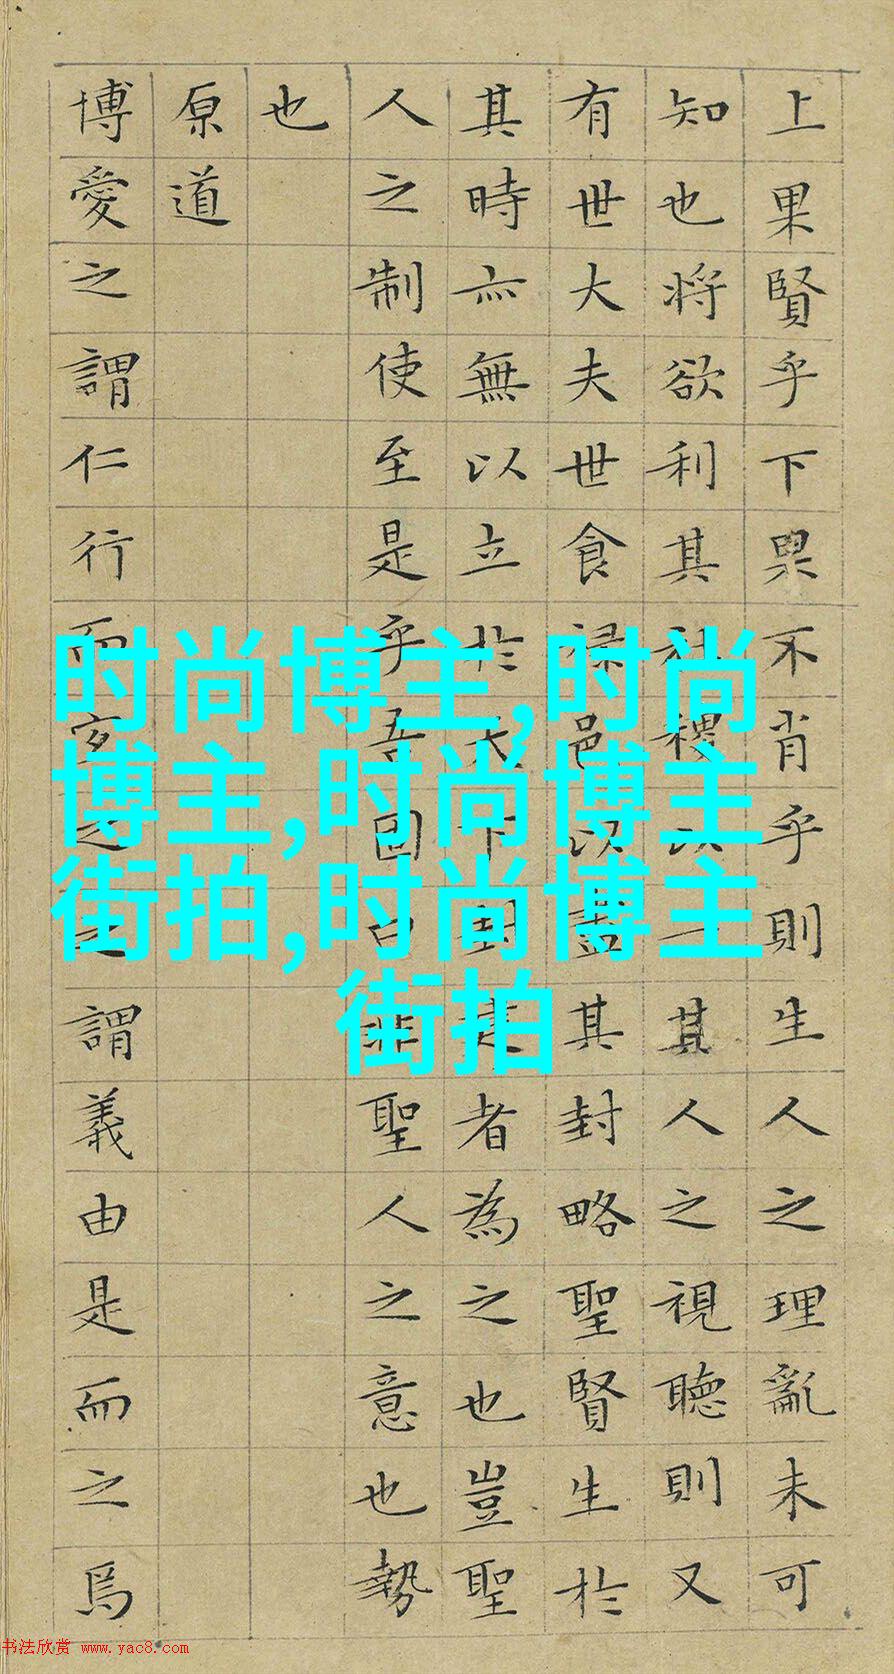 上果賢乎下果不肖乎則生人之理亂未可
知也将欲利其社稷以一其人之視聴則又
有世大夫世食禄邑以盡其封略聖賢生於
其時亦無以立於天下封建者為之也豈聖
人之制使至是乎吾固曰非聖人之意也勢
也
原道
博愛之謂仁行而宜之之謂義由是而之焉
时尚博主,时尚
博主,时尚博主
街拍,时尚博主
街拍
书法欣赏 www.yac8.com